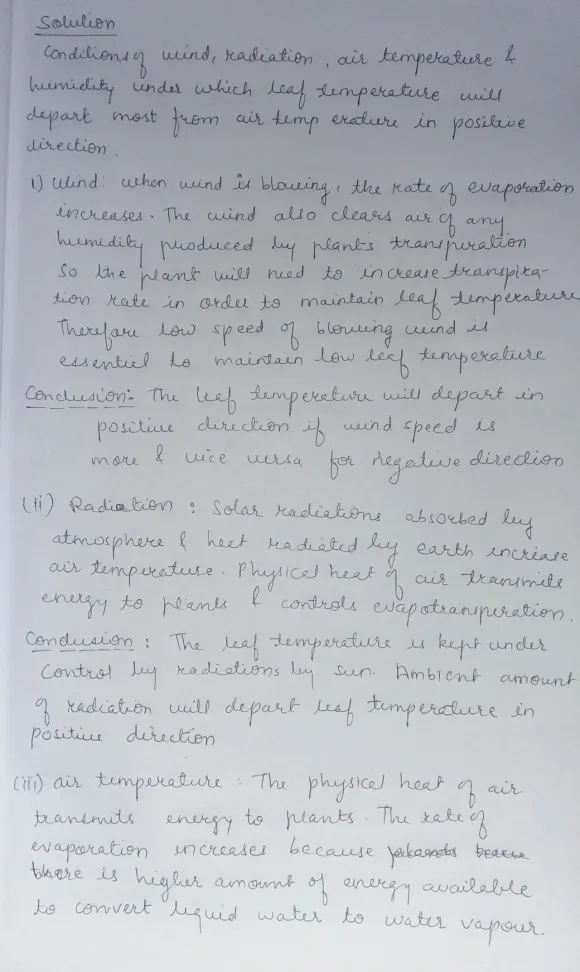 Solution
Conditions of wind, radiation, air temperature &
humidity under which leaf temperature will
depart most from air temp erature in positive
direction.
1) Wind: when wind is blowing, the rate of evaporation
increases. The wind also clears air of any
humidity produced by plants transpiration
So the plant will need to increase transpira-
tion rate in order to maintain leaf temperature
Therefore low speed of blowing wind is
essentiel to maintain low leef temperature
Conclusion:- The leef temperature will depart in
positive direction if wind speed is
more & vice versa for negative direction
(ii) Radiation : Solar radiations absorbed by
atmosphere & heet radiated by earth increase
air temperature. Physical heat of air transmits
energy to plants & controls evapotranspiration.
Conclusion : The leaf temperature is kept under
Control by radiations by sun. Ambient amount
of radiation will depart leef temperature in
positive direction
(iii) air temperature : The physical heat of air
transmits energy to plants. The rate of
evaporation increases because
there is higher amount of energy available
to convert liquid water to water vapour.